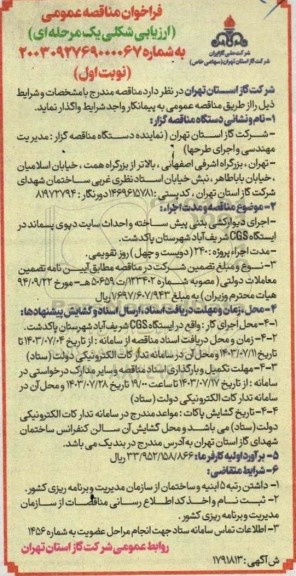 فراخوان مناقصه عمومی
(ارزیابی شکلی یک مرحله ای)
به شماره ۲۰۰۳۰۹۲۷۶۹۰۰۰۰۶۷
(نوبت اول)
شرکت ملی گاز ایران
شرکت گاز استان تهران (سهامی خاص)
شرکت گاز استان تهران در نظر دارد مناقصه مندرج با مشخصات و شرایط
ذیل را از طریق مناقصه عمومی به پیمانکار واجد شرایط واگذار نماید.
۱- نام و نشانی دستگاه مناقصه گزار:
- شرکت گاز استان تهران (نماینده دستگاه مناقصه گزار: مدیریت
مهندسی و اجرای طرحها)
- تهران، بزرگراه اشرفی اصفهانی، بالاتر از بزرگراه همت، خیابان اسلامیان
، خیابان باباطاهر، نبش خیابان استاد نظری غربی ساختمان شهدای
شرکت گاز استان تهران، کدپستی: ۱۴۶۹۶۱۵۷۸۱ دورنگار: ۸۱۹۷۲۷۹۴
۲- موضوع مناقصه و مدت اجراء:
- اجرای دیوارکشی بتنی پیش ساخته و احداث سایت دپوی پسماند در
ایستگاه CGS شریف آباد شهرستان پاکدشت.
- مدت اجراء پروژه: ۲۴۰ (دویست و چهل) روز تقویمی.
۳- نوع و مبلغ تضمین شرکت در مناقصه مطابق آیین نامه تضمین
معاملات دولتی (مصوبه شماره ۱۲۳۴۰۲/ت۵۰۶۵۹هـ مورخ ۹۴/۰۹/۲۲
هیات محترم وزیران) به مبلغ ۷۶۹۷/۶۰۷/۹۴۳ ریال
۴- محل، زمان و مهلت دریافت اسناد، ارسال اسناد و گشایش پیشنهادها:
۴-۱- محل اجرای کار: واقع در ایستگاه CGS شریف آباد شهرستان پاکدشت.
۴-۲- زمان و محل دریافت اسناد مناقصه از سامانه: از تاریخ ۱۴۰۳/۰۷/۰۴ تا
تاریخ ۱۴۰۳/۰۷/۱۱ و محل آن در سامانه تدارکات الکترونیکی دولت (ستاد)
۴-۳- مهلت تکمیل و بارگذاری اسناد مناقصه و سایر مدارک درخواستی در
سامانه: از تاریخ ۱۴۰۳/۰۷/۱۷ تا ساعت ۱۹/۰۰ تاریخ ۱۴۰۳/۰۷/۲۸ و محل آن در
سامانه تدارکات الکترونیکی دولت (ستاد)
۴-۴- تاریخ گشایش پاکات: مواعد مندرج در سامانه تدارکات الکترونیکی
دولت (ستاد) می باشد و محل گشایش آن سالن کنفرانس ساختمان
شهدای گاز استان تهران به آدرس مندرج در بند یک می باشد.
۵- برآورد اولیه کارفرما: ۳۳/۹۵۲/۱۵۸/۸۶۶ ریال
۶- شرایط متقاضی:
۱- داشتن رتبه ۵ ابنیه و ساختمان از سازمان مدیریت و برنامه ریزی کشور.
۲- ثبت نام و اخذ کد اطلاع رسانی مناقصات از سازمان
مدیریت و برنامه ریزی کشور.
۳- اطلاعات تماس سامانه ستاد جهت انجام مراحل عضویت به شماره ۱۴۵۶
روابط عمومی شرکت گاز استان تهران
ش آگهی: ۱۷۹۱۸۱۳